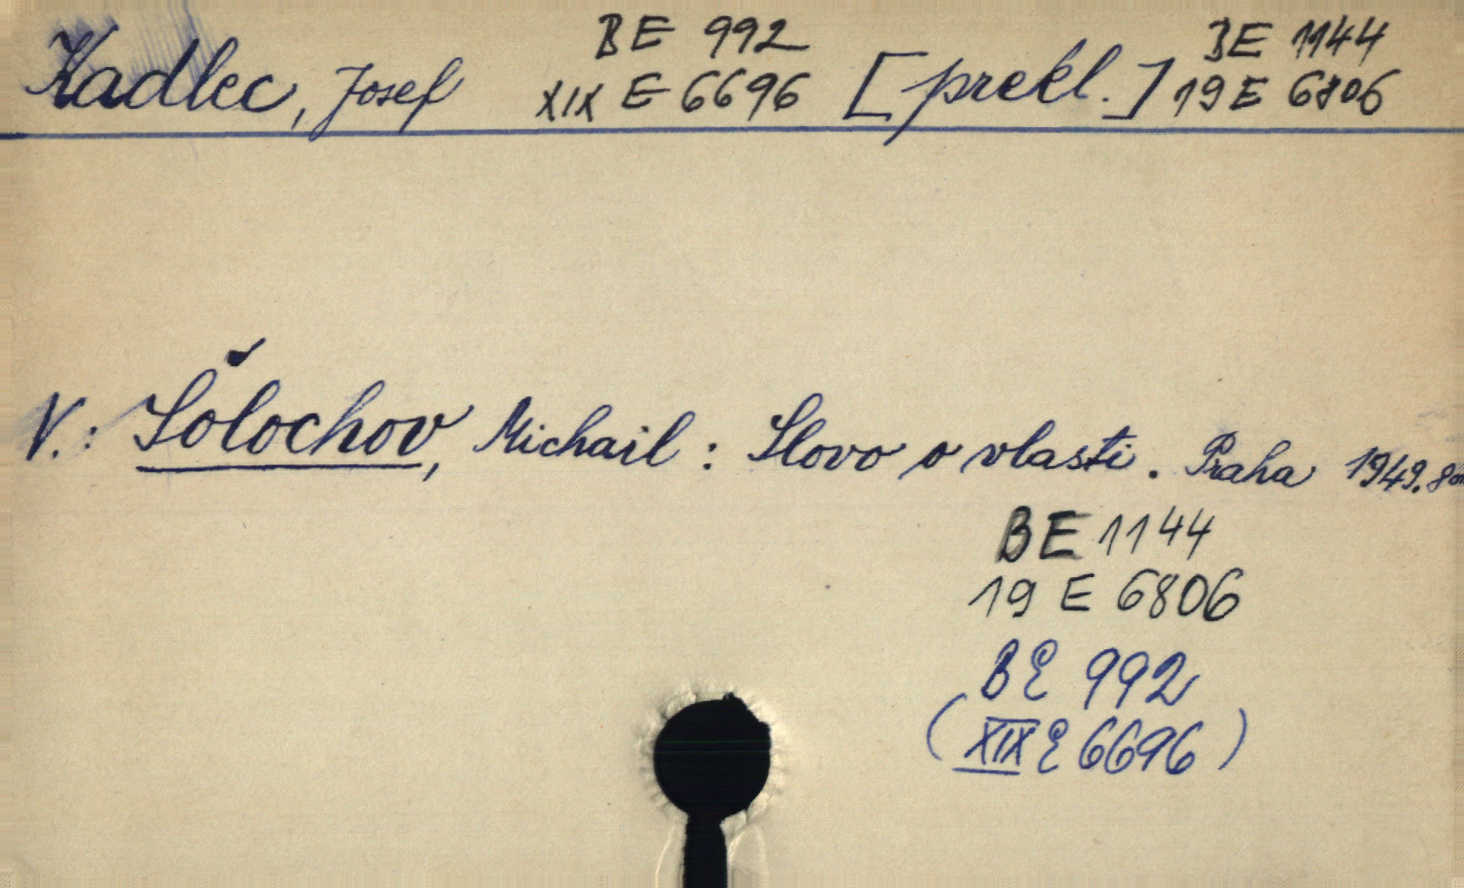 Kadlec, Josef BE 992 [prekl.] BE 1144
XIX E 6696 19 E 6806
V.: Šolochov, Michail: Slovo o vlasti. Praha 1949. 8°
BE 1144
19 E 6806
BE 992
(XIX E 6696)